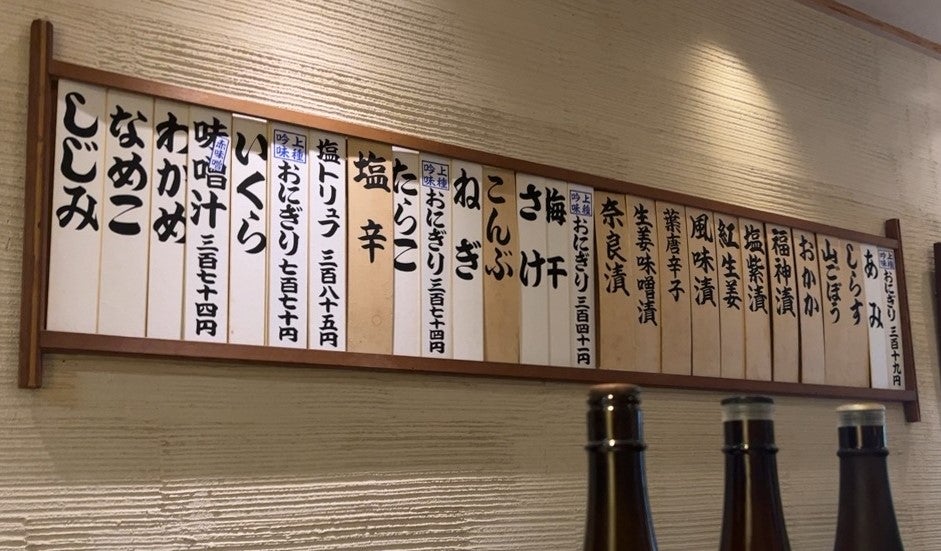 上種吟味 おにぎり 三百十九円
あみ
しらす
山ごぼう
おかか
福神漬
塩紫漬
紅生姜
風味漬
葉唐辛子
生姜味噌漬
奈良漬
上種吟味 おにぎり 三百四十一円
梅干
さけ
こんぶ
ねぎ
上種吟味 おにぎり 三百七十四円
たらこ
塩辛
塩トリュフ 三百八十五円
上種吟味 おにぎり 七百七十円
いくら
赤味噌 味噌汁 三百七十四円
わかめ
なめこ
しじみ